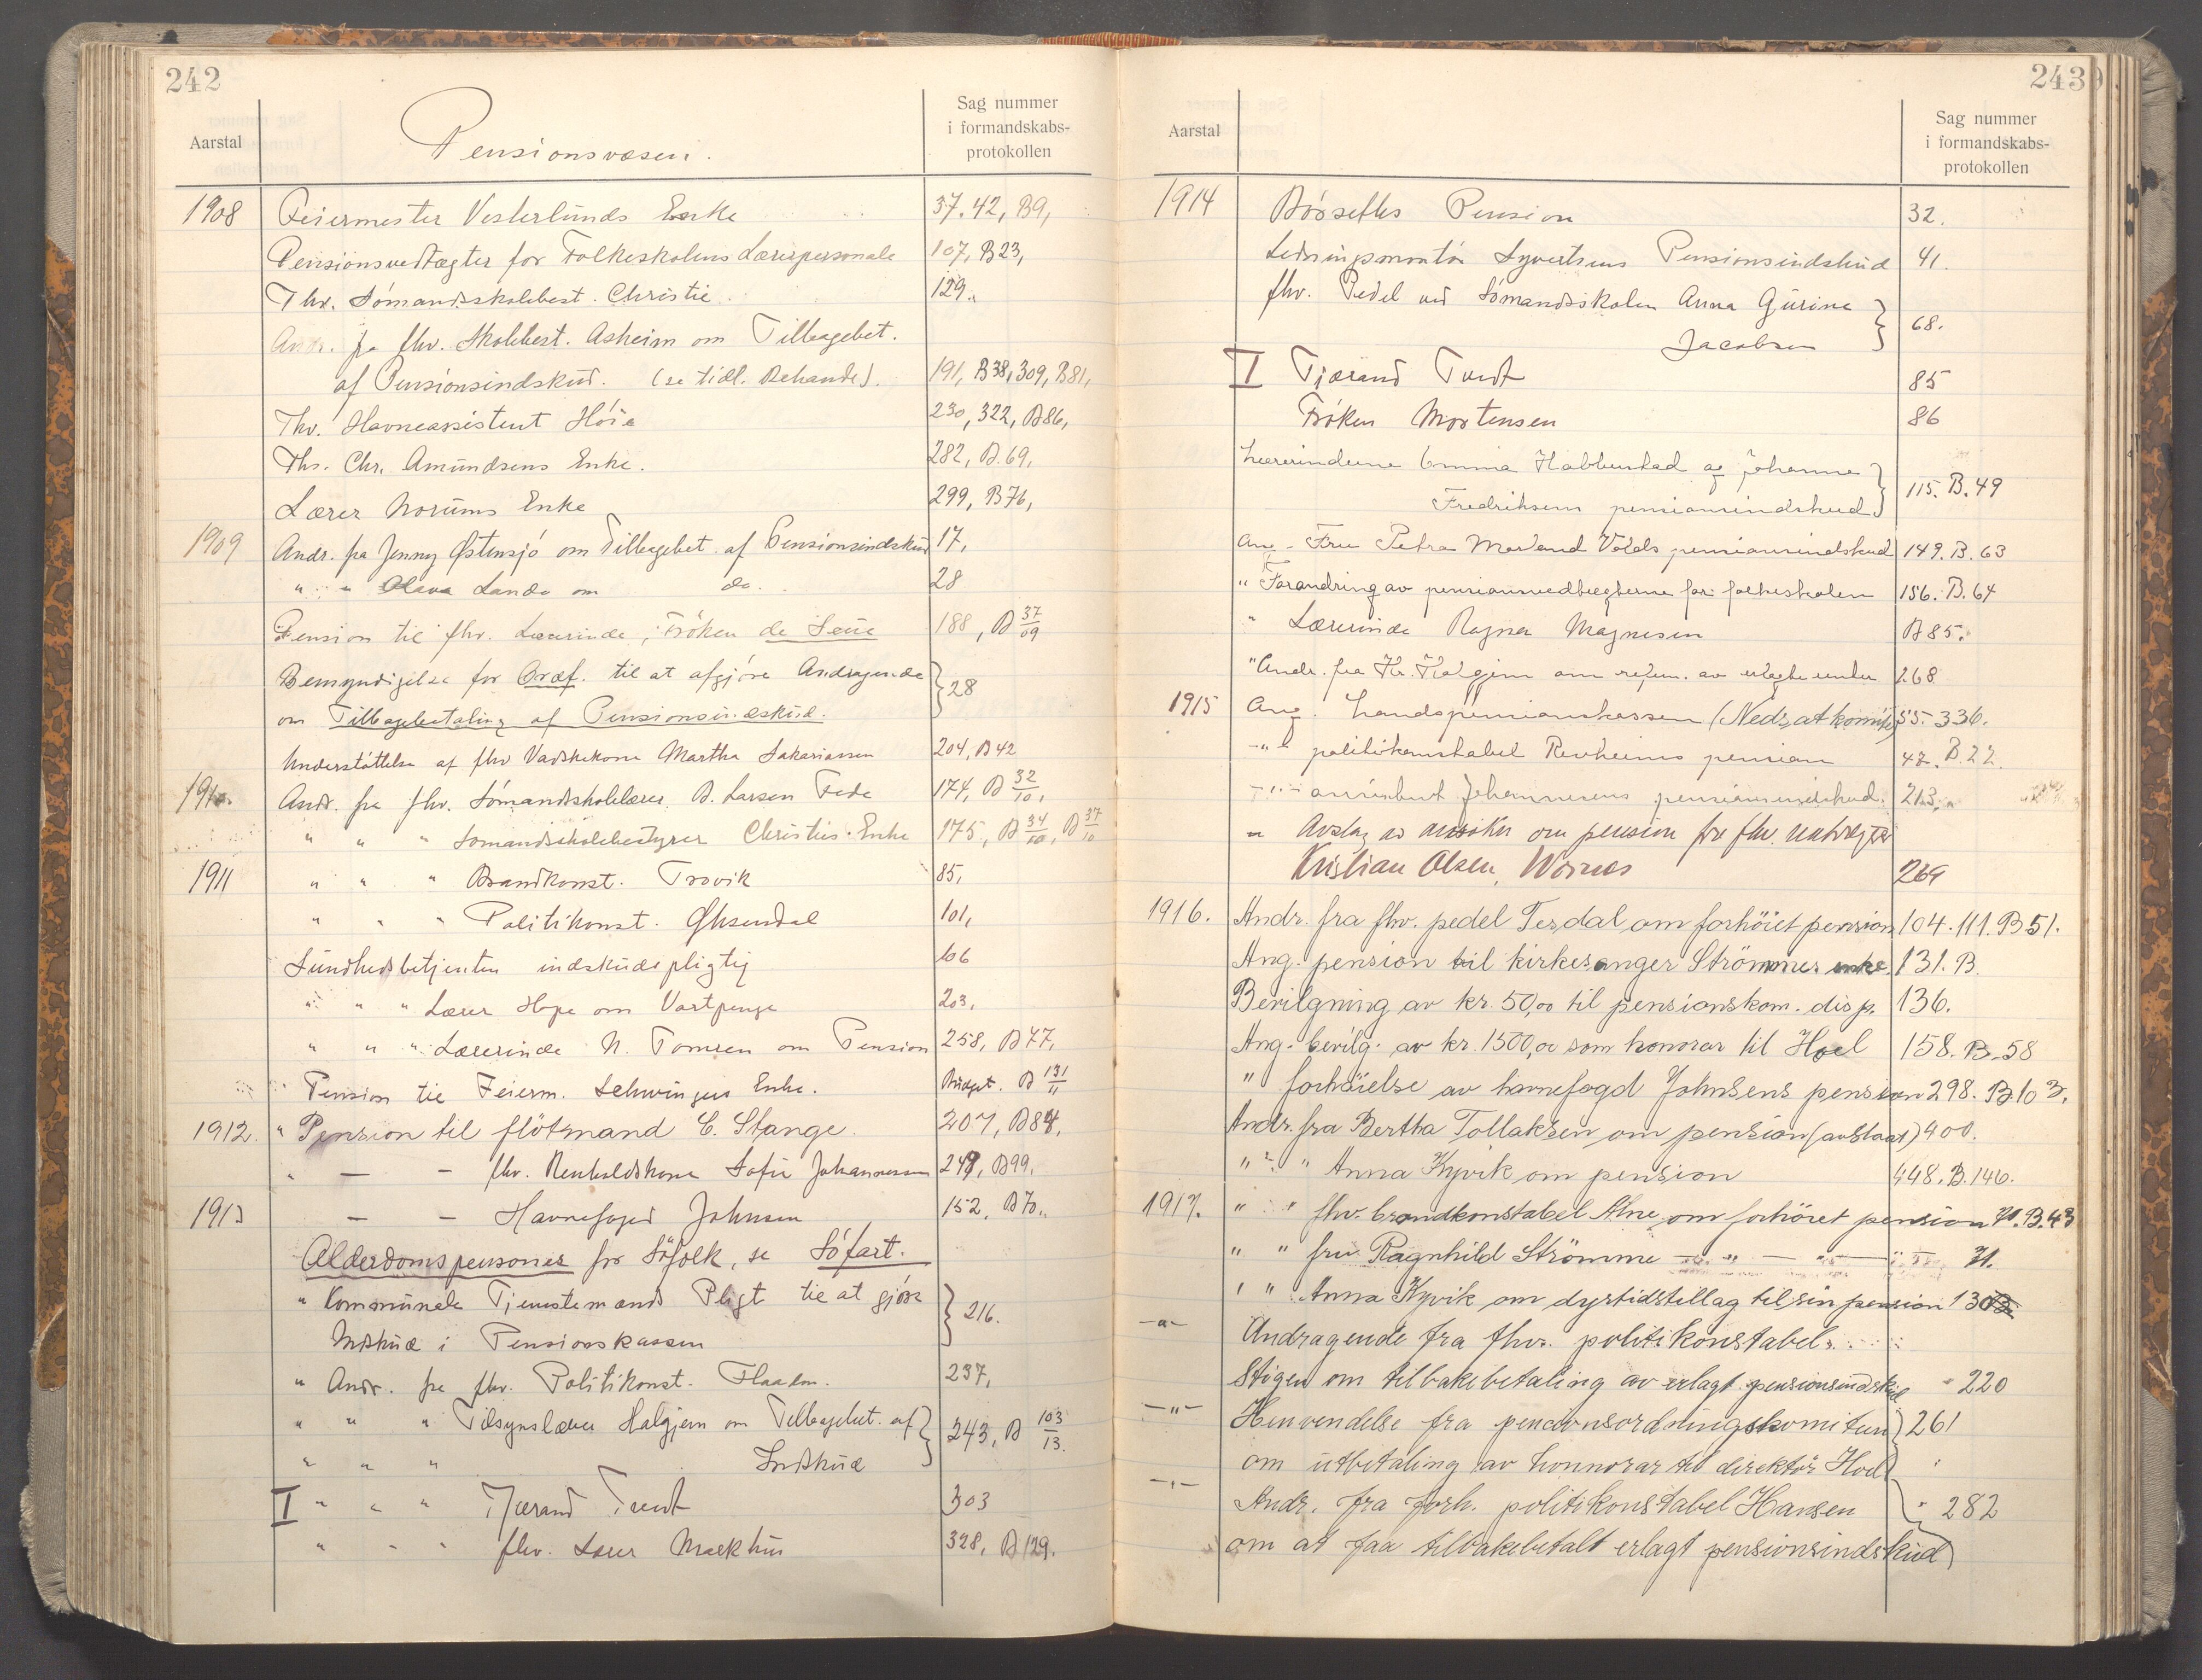 242
Aarstal
Pensionsvæsen.
Sag nummer
i formandskabs-
protokollen
1908 Feiermester Vesterlunds Enke 37. 42, B9,
Pensionsvedtægter for Folkeskolens Lærerpersonale 107, B23,
Fhv. Sómandsskolebest. Christie. 129.
Andr. fra fhv. Skolebest. Asheim om Tilbagebet.
af Pensionsindskud. (se tidl. Behandl). 191, B38, 309, B81,
Fhv. Havneassistent Höie 230, 322, B86,
Ths. Chr. Amundsens Enke. 282, B.69,
Lærer Norums Enke 299, B76,
1909 Andr. fra Jenny Østensjó om Tilbagebet. af Pensionsindskud 17,
" " Olava Lande om do. 28
Pension til fhv. Lærerinde, Fröken de Seue 188, B 37/09
Bemyndigelse for Oræf. til at afgjøre Andragende
om Tilbagebetaling af Pensionsindskud. } 28
Understöttelse af fhv Vadskekone Martha Sakariassen 204, B42
1910. Andr. fra fhv. Sómandsskolelærer B. Larsen Fede 174, B 32/10,
" " " Sómandsskolebestyrer Christies Enke 175, B 34/10, B 37/10
1911 " " " Brandkonst. Trovik 85,
" " " Politikonst. Øksendal 101,
Sundhedsbetjenten indskudspligtig 106
" " " Lærer Hope om Vartpenge 203,
" " " Lærerinde N. Tomsen om Pension 258, B77,
Pension til Feierm. Schwingers Enke. Budget. B 131/11
1912. " Pension til flötmand C. Stange 207, B84,
" — — fhv. Renholdskone Sofie Johannessen 249, B99,
1913 — — Havnefoged Johnsen 152, B70,
Alderdomspensoner for Söfolk, se Söfart.
" Kommunale Tjenestemænds Pligt til at gjöre
Indskud i Pensionskassen } 216.
" Andr. fra fhv. Politikonst. Flaaten. 237,
" " " Tilsynslærer Halgjem om Tilbagebet. af
" " " Indskud } 243, B 103/13.
I " " " Tjærand Tvedt 303
" " " fhv. Lærer Mackhus 328, B129.
243
Aarstal
Sag nummer
i formandskabs-
protokollen
1914 Bösseths Pension 32.
Ledningsmontör Syvertsens Pensionsindskud 41.
fhv. Pedel ved Sómandsskolen Anna Gurine
Jacobsen } 68.
I Tjærand Tvedt 85
Fröken Mortensen 86
Lærerinderne Emma Habbestad og Johanne
Fredriksens pensionsindskud } 115. B.49
Ang. Fru Petra Morland Volds pensionsindskud 149. B. 63
" Forandring av pensionsvedtægterne for folkeskolen 156. B. 64
" Lærerinde Ragna Magnesen B85.
" Andr. fra Hr. Halgjem om refun. av erlagte 268
1915 Ang. Landspensionskassen (Nedsat komite) 55. 336.
—"— politikonstabel Revheims pension 42. B.22.
—"— assistent Johannesens pensionsindskud. 213.
" Avslag av ansökn om pension for fhv. natvægter
Kristian Olsen Worness 269
1916. Andr. fra fhv. pedel Tesdal om forhöiet pension 104. 111. B51.
Ang. pension til kirkesanger Strömmes enke. 131. B.
Bevilgning av kr. 50,00 til pensionskom. disp. 136.
Ang. bevilg. av kr. 1500,00 som honorar til Hoel 158. B.58
" forhöielse av havnefogd Johnsens pension 298. B.103.
Andr. fra Bertha Tollaksen om pension (avslaat) 400.
" " Anna Kyvik om pension 448. B.146.
1917. " " fhv. brandkonstabel Alne om forhöiet pension 70. B.43
" " fru Ragnhild Strömme — " — " — 71.
" " Anna Kyvik om dyrtidstillag til sin pension 130
—"— Andragende fra fhv. politikonstabel
Stigen om tilbakebetaling av erlagt pensionsindskud " 220
—"— Henvendelse fra pensionsordningskomiteen
om utbetaling av honnorar til direktör Hoel } 261
—"— Andr. fra forh. politikonstabel Hansen
om at faa tilbakebetalt erlagt pensionsindskud } " 282